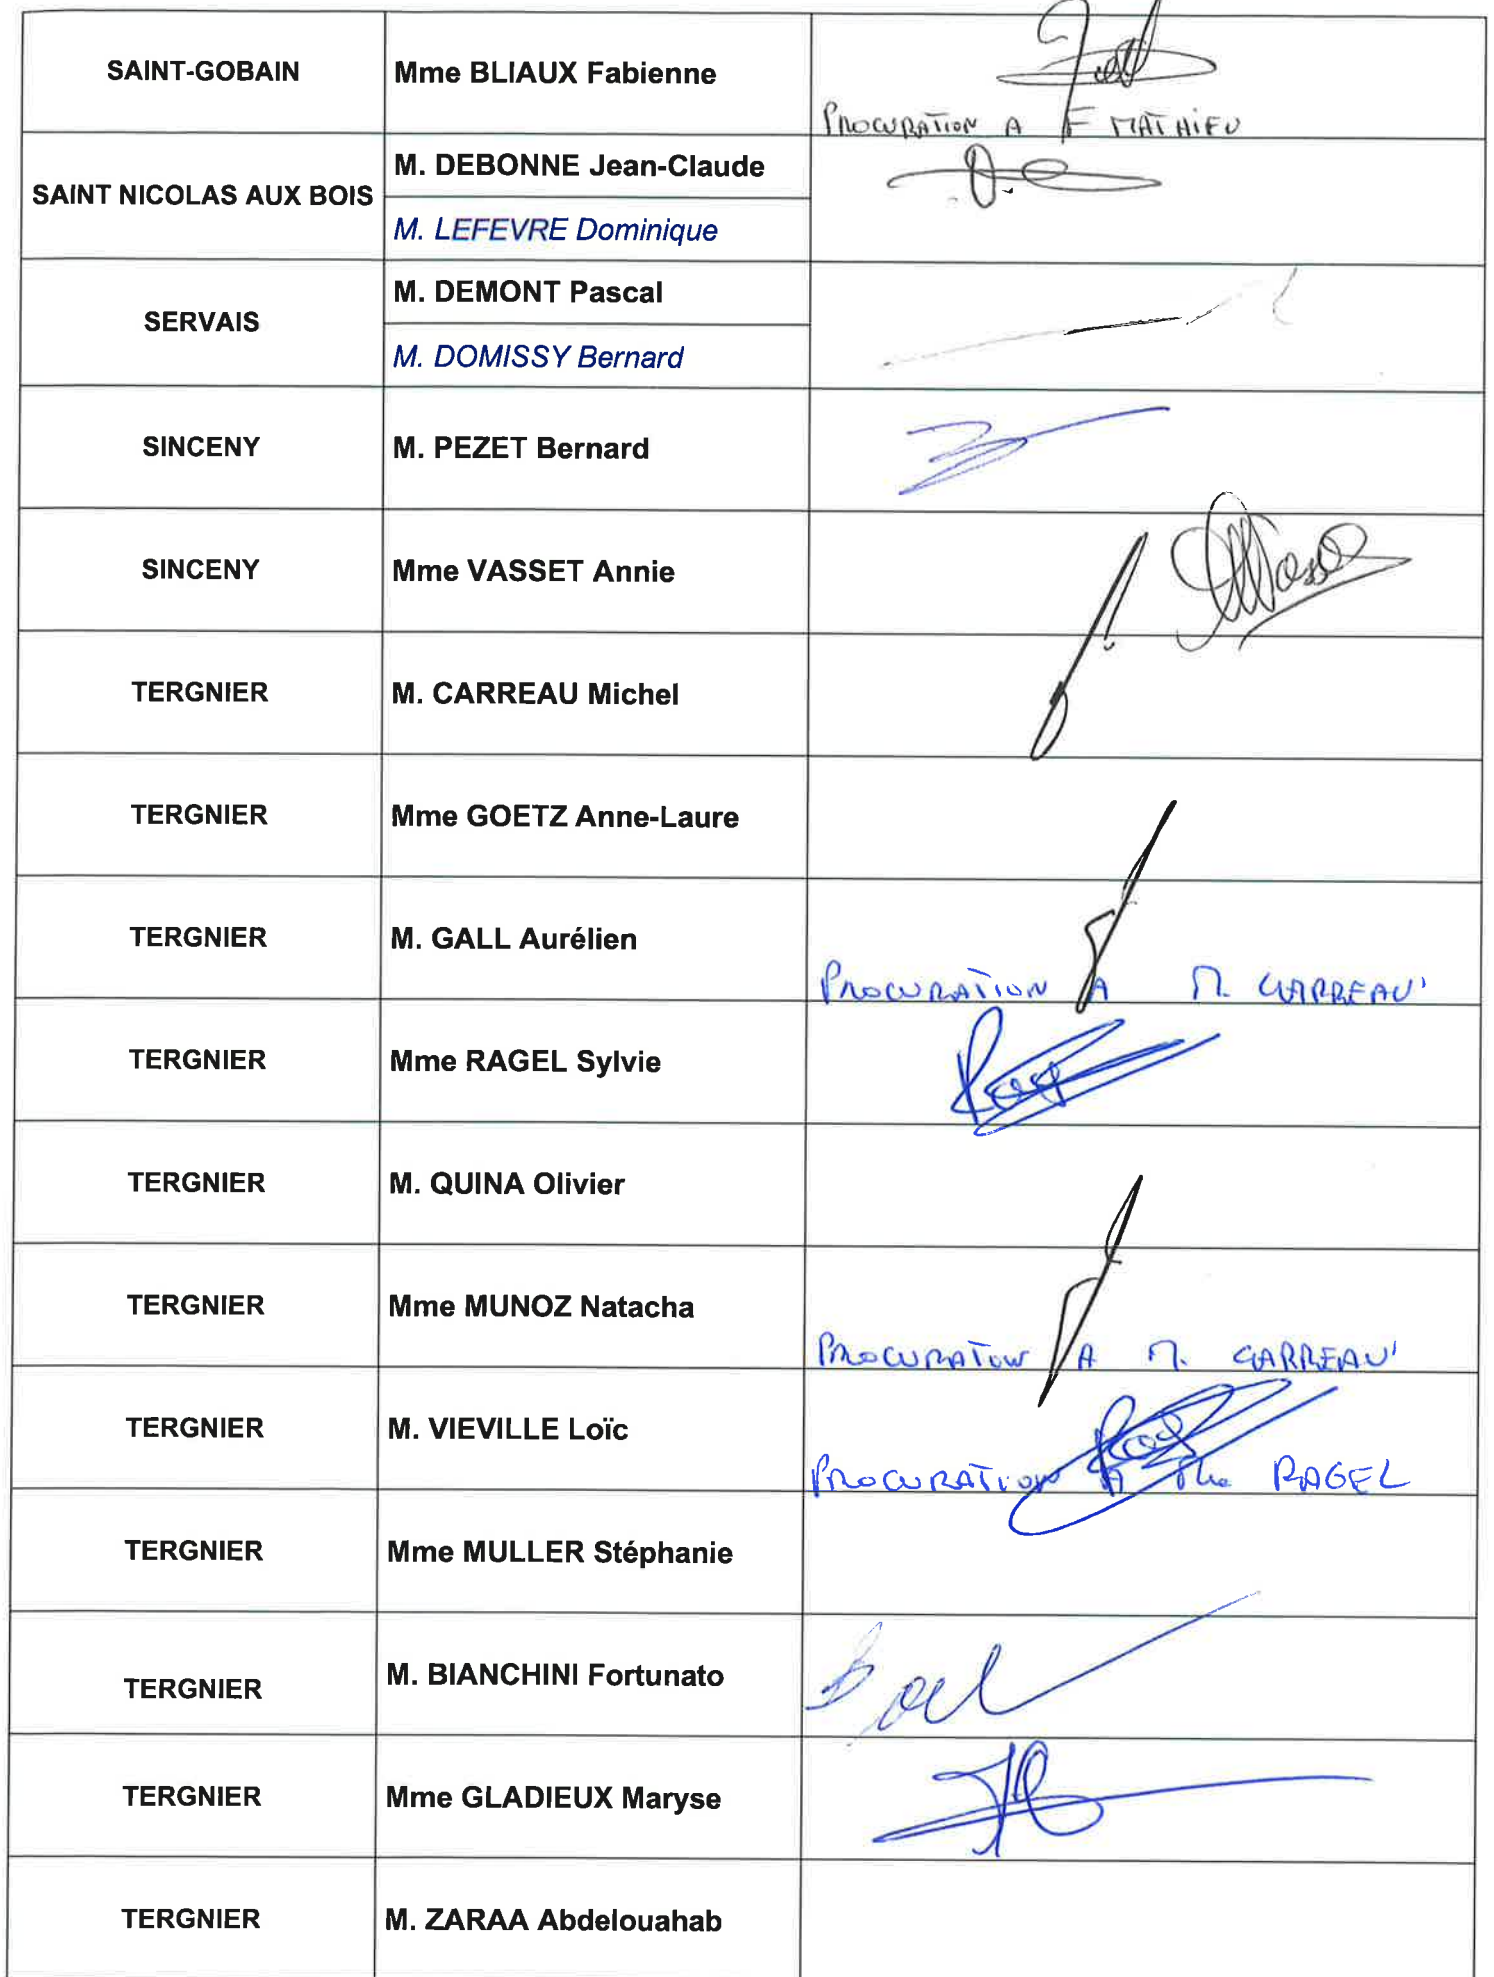 SAINT-GOBAIN
Mme BLIAUX Fabienne
PROCURATION A F MATHIEU
SAINT NICOLAS AUX BOIS
M. DEBONNE Jean-Claude
M. LEFEVRE Dominique
SERVAIS
M. DEMONT Pascal
M. DOMISSY Bernard
SINCENY
M. PEZET Bernard
SINCENY
Mme VASSET Annie
TERGNIER
M. CARREAU Michel
TERGNIER
Mme GOETZ Anne-Laure
TERGNIER
M. GALL Aurélien
PROCURATION A M. CARREAU
TERGNIER
Mme RAGEL Sylvie
TERGNIER
M. QUINA Olivier
TERGNIER
Mme MUNOZ Natacha
PROCURATION A M. CARREAU
TERGNIER
M. VIEVILLE Loïc
PROCURATION A Mme RAGEL
TERGNIER
Mme MULLER Stéphanie
TERGNIER
M. BIANCHINI Fortunato
TERGNIER
Mme GLADIEUX Maryse
TERGNIER
M. ZARAA Abdelouahab